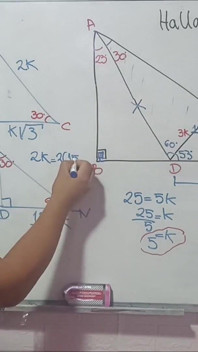 Halla
A
25 30
2K
30
C
K√3
3K
60
53
D
2K=2(5
D
25=5K
25/5=K
5=K